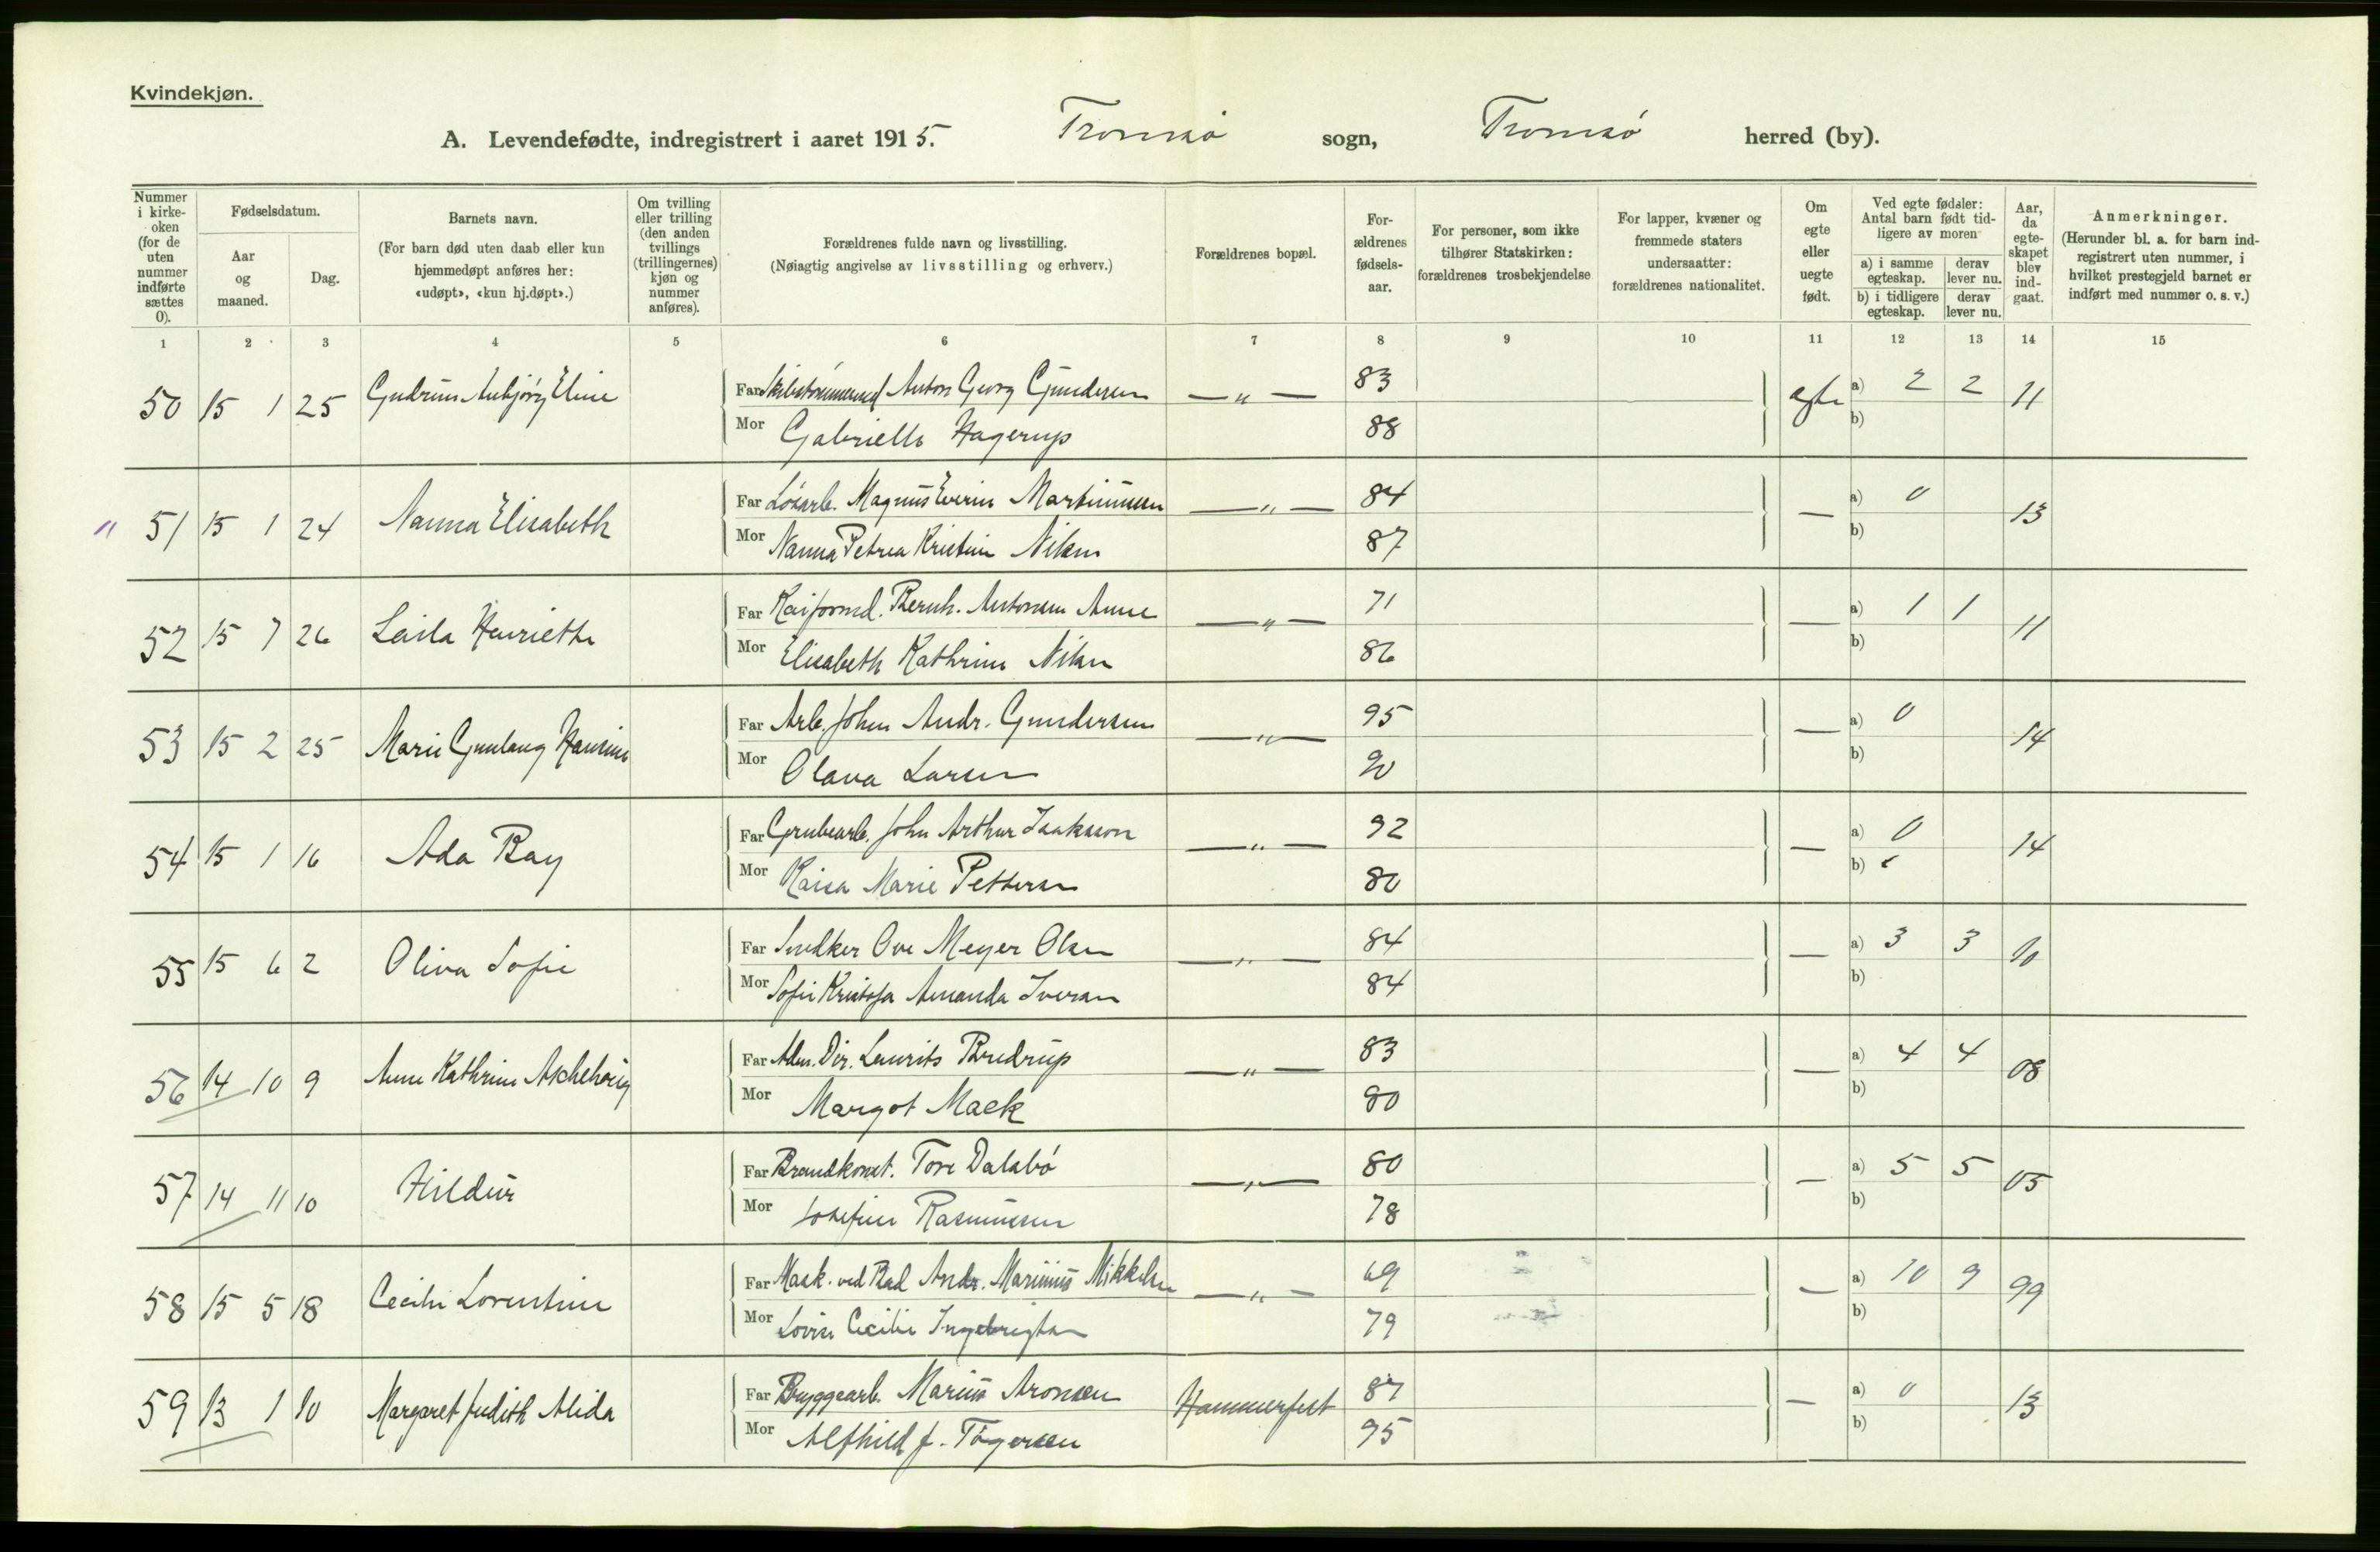 Kvindekjøn.
A. Levendefødte, indregistrert i aaret 1915. Tromsø sogn, Tromsø herred (by).
Nummer i kirke-oken (for de uten nummer indførte sættes 0).
Fødselsdatum.
Aar og maaned.
Dag.
Barnets navn.
(For barn død uten daab eller kun hjemmedøpt anføres her: «udøpt», «kun hj.døpt».)
Om tvilling eller trilling (den anden tvillings (trillingernes) kjøn og nummer anføres).
Forældrenes fulde navn og livsstilling.
(Nøiagtig angivelse av livsstilling og erhverv.)
Forældrenes bopæl.
For-ældrenes fødsels-aar.
For personer, som ikke tilhører Statskirken: forældrenes trosbekjendelse
For lapper, kvæner og fremmede staters undersaatter: forældrenes nationalitet.
Om egte eller uegte født.
Ved egte fødsler: Antal barn født tid-ligere av moren
a) i samme egteskap.
derav lever nu.
b) i tidligere egteskap.
derav lever nu.
Aar, da egte-skapet blev ind-gaat.
Anmerkninger.
(Herunder bl. a. for barn ind-registrert uten nummer, i hvilket prestegjeld barnet er indført med nummer o. s. v.)
1 2 3 4 5 6 7 8 9 10 11 12 13 14 15
50 15 1 25 Gudrun Anbjørg Eline Far Anton Georg Gundersen —„— 83 egte a) 2 2 11
Mor Gabrielle Hagerup 88 b)
„ 51 15 1 24 Nanna Elisabeth Far Løsarb. Magnus Martinussen —„— 84 — a) 0 13
Mor Nanna Petrea Kristine Nilsen 87 b)
52 15 7 26 Leila Henriette Far Kaiformd. Bernh. Antonsen Aune —„— 71 — a) 1 1 11
Mor Elisabeth Kathrine Nilsen 86 b)
53 15 2 25 Marie Gunlaug Hansine Far Arb. Johan Andr. Gundersen —„— 95 — a) 0 14
Mor Olava Larsen 90 b)
54 15 1 16 Ada Ray Far Grubearb. John Arthur Isaksson —„— 92 — a) 0 14
Mor Kaisa Marie Pettersen 80 b)
55 15 6 2 Oliva Sofie Far Snedker Ove Meyer Olsen —„— 84 — a) 3 3 10
Mor Sofie Kristofa Amanda Iversen 84 b)
56 14 10 9 Anne Kathrine Aschehoug Far Adm. Dir. Laurits Brudrup —„— 83 — a) 4 4 08
Mor Margot Mack 80 b)
57 14 11 10 Hildur Far Brandkonst. Tore Dalsbø —„— 80 — a) 5 5 05
Mor Josefine Rasmussen 78 b)
58 15 5 18 Cecilie Lorentine Far Mask. ved Bad Andr. Marinius Mikkelsen —„— 69 — a) 10 9 99
Mor Lovise Cecilie Ingebrigtsen 79 b)
59 13 1 10 Margaret Judith Alida Far Bryggearb. Marius Aronsen Hammerfest 87 — a) 0 13
Mor Alfhild J. Tøgersen 95 b)